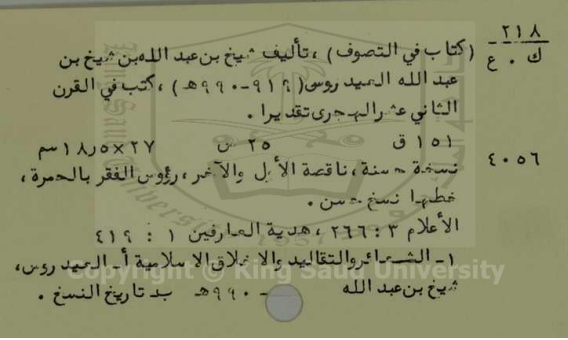 ٢١٨
ك . ع
(كتاب في التصوف) ، تأليف شيخ بن عبد الله بن شيخ بن
عبد الله العيدروس (٩١٩-٩٩٠هـ) ، كتب في القرن
الثاني عشر الهجري تقديرا .
١٥١ ق ٢٥ س ٢٧×١٨٫٥ سم
٤٠٥٦
نسخة حسنة ، ناقصة الأول والآخر ، رؤوس الفقر بالحمرة ،
خطها نسخ حسن .
الأعلام ٣ : ٢٦٦ ، هدية العارفين ١ : ٤١٩
١- الشعائر والتقاليد والاخلاق الاسلامية أ- العيدروس ،
شيخ بن عبد الله - ٩٩٠هـ ب- تاريخ النسخ .
Copyright © King Saud University
King Saud University
1957